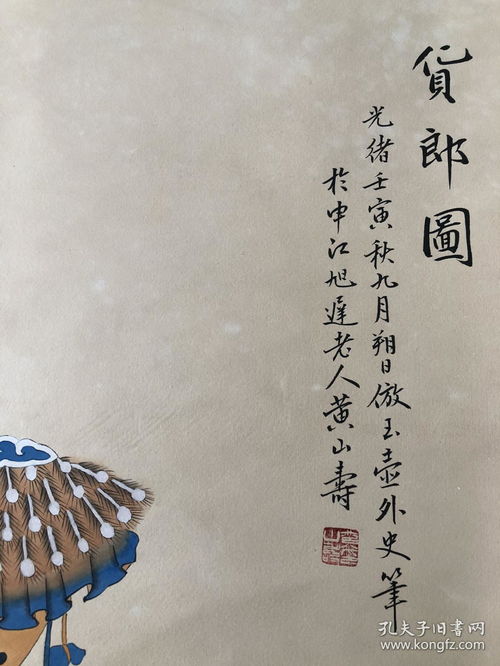 貨郎圖
光緒壬寅秋九月朔日倣玉壺外史筆
於申江旭遲老人黃山壽
孔夫子旧书网
www.kongfz.com